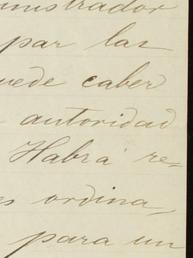 nistrador
par las
uede caber
autoridad
Habrá re-
s ordina,
para un